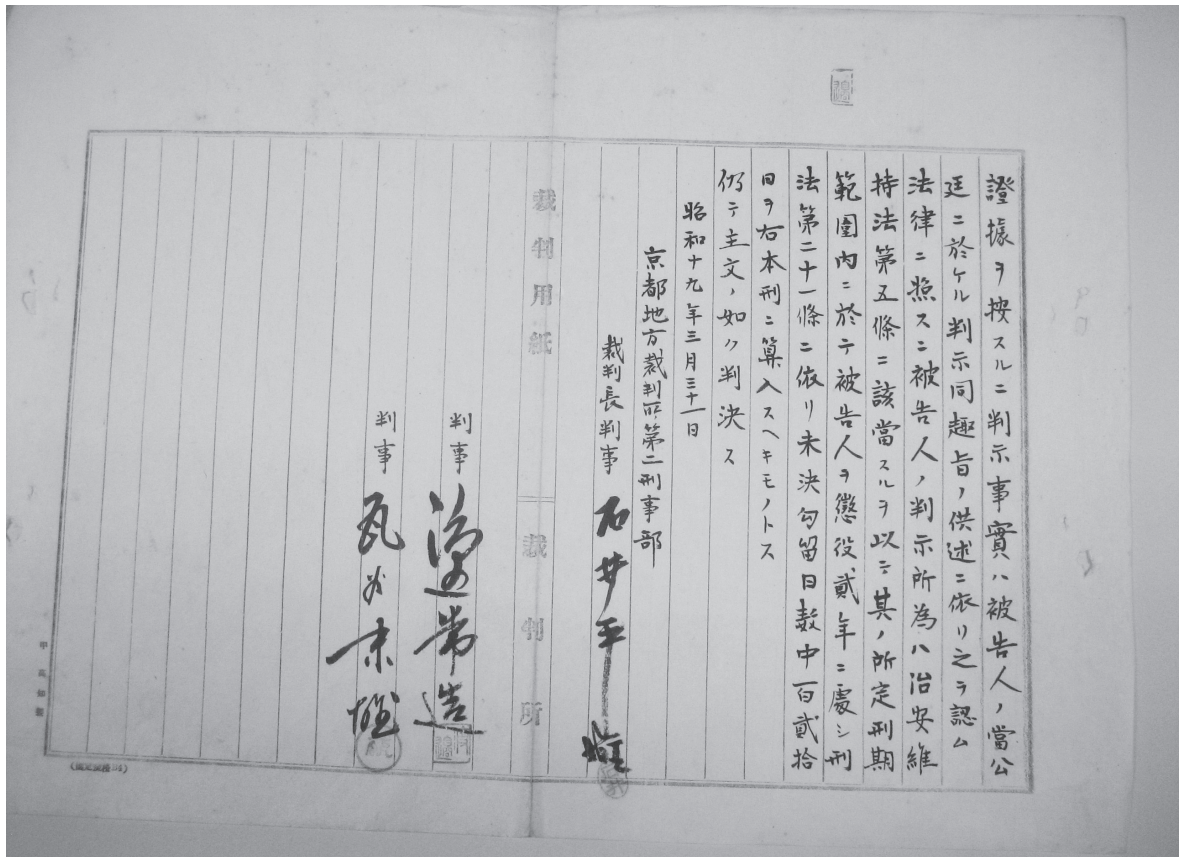 證據ヲ按スルニ判示事實ハ被告人ノ當公
廷ニ於ケル判示同趣旨ノ供述ニ依リ之ヲ認ム
法律ニ照スニ被告人ノ判示所為ハ治安維
持法第五條ニ該當スルヲ以テ其ノ所定刑期
範圍内ニ於テ被告人ヲ懲役貳年ニ處シ刑
法第二十一條ニ依リ未決勾留日數中百貳拾
日ヲ右本刑ニ算入スヘキモノトス
仍テ主文ノ如ク判決ス
昭和十九年三月三十一日
京都地方裁判所第二刑事部
裁判長判事 石井平雄
裁判用紙
裁判所
判事 渡邊常造
判事 瓦谷末雄